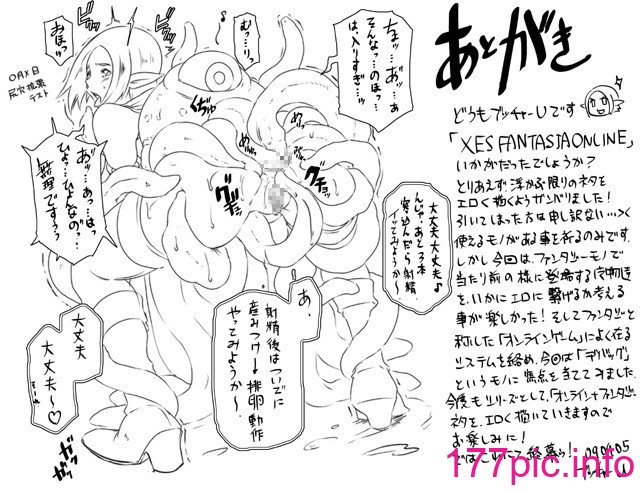 あとがき
どうもブッチャーUです
「XES FANTASIA ONLINE」
いかがだったでしょうか?
とりあえず、浮かぶ限りのネタを
エロく描くようガンバりました!
引いてしまった方は申し訳ない…
使えるモノがある事を祈るのみです.
しかし今回は、ファンタジーモノで
当り前の様に登場する
を、いかにエロに繋げるか考える
事が楽しかった!そしてファンタジーと
称した「オンラインゲーム」によく在る
システムを絡め、今回は「デバッグ」
というモノに焦点を当ててみました.
今後もシリーズとして、「オンライン+ファンタジー」
ネタを、エロく描いていきますので
お楽しみに!
09.04.05
ブッチャーU
大丈夫大丈夫♪
んじゃ、あと3本
突込んだら射精
イッてみようか〜
あ、
射精後はついでに
産みつけ→排卵動作
やってみようか〜.
大丈夫
大丈夫〜♡
無理ですぅっ
〇月×日
尻穴拡張
テスト
おほっ
むっ…り…っ
ちょッ…あッ…ぁ
そんなっ…のほっ…
は、入りすぎ…ッ
ぐぢゅ
グチョッ
ガッ
177pic.info